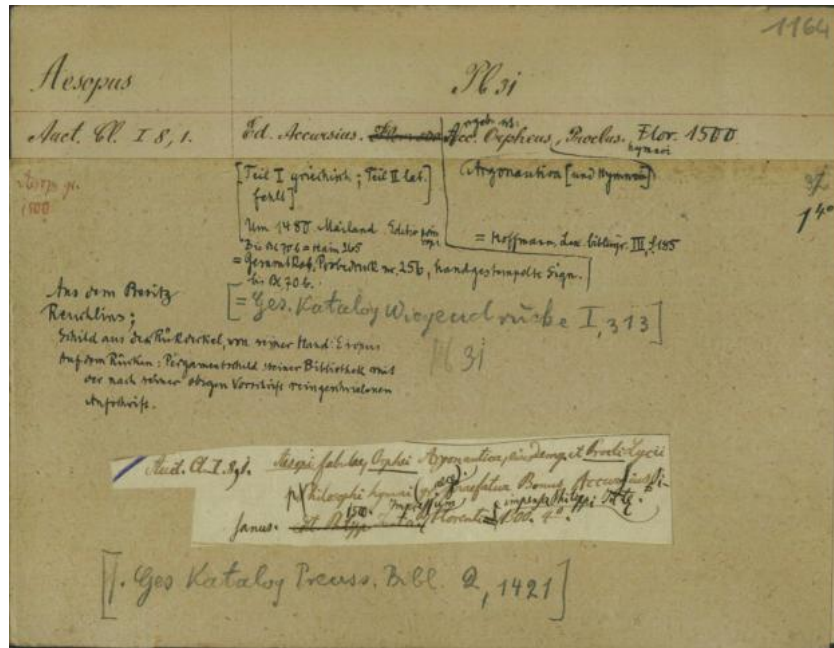 1164
Aesopus Pb 31
Auct. Cl. I 8, 1. Ed. Accursius. Acc. Orpheus, Proclus. Flor. 1500
angeb. ist: hymni
[Teil I griechisch; Teil II lat. Argonautica [und Hymnen]
fehlt]
Aesop. gr.
1500
Um 1480 Mailand. Editio
Bis Bl. 70 b = Hain 265 = Hoffmann, Lex. bibliogr. III, S. 185
= Gesamtkat. Probedruck nr. 256, handgestempelte Sign.
bis Bl. 70 b.
[= Ges. Katalog Wiegendrucke I, 313]
Aus dem Besitz
Reuchlins;
Schild aus der Rückdeckel, von seiner Hand:
Auf dem Rücken: Pergamentschild seiner Bibliothek mit
der nach seiner obigen Vorschrift reingeschriebenen
Aufschrift.
Pb 31
Auct. Cl. I. 8, 1. Aesopi fabulae, Orphei Argonautica, eiusdemq. et Procli Lycii
Philosophi hymni praefatur Bonus Accursius
impensa Philippi
Janus. Florentiae 1500. 4°.
[f. Ges Katalog Preuss. Bibl. 2, 1421]